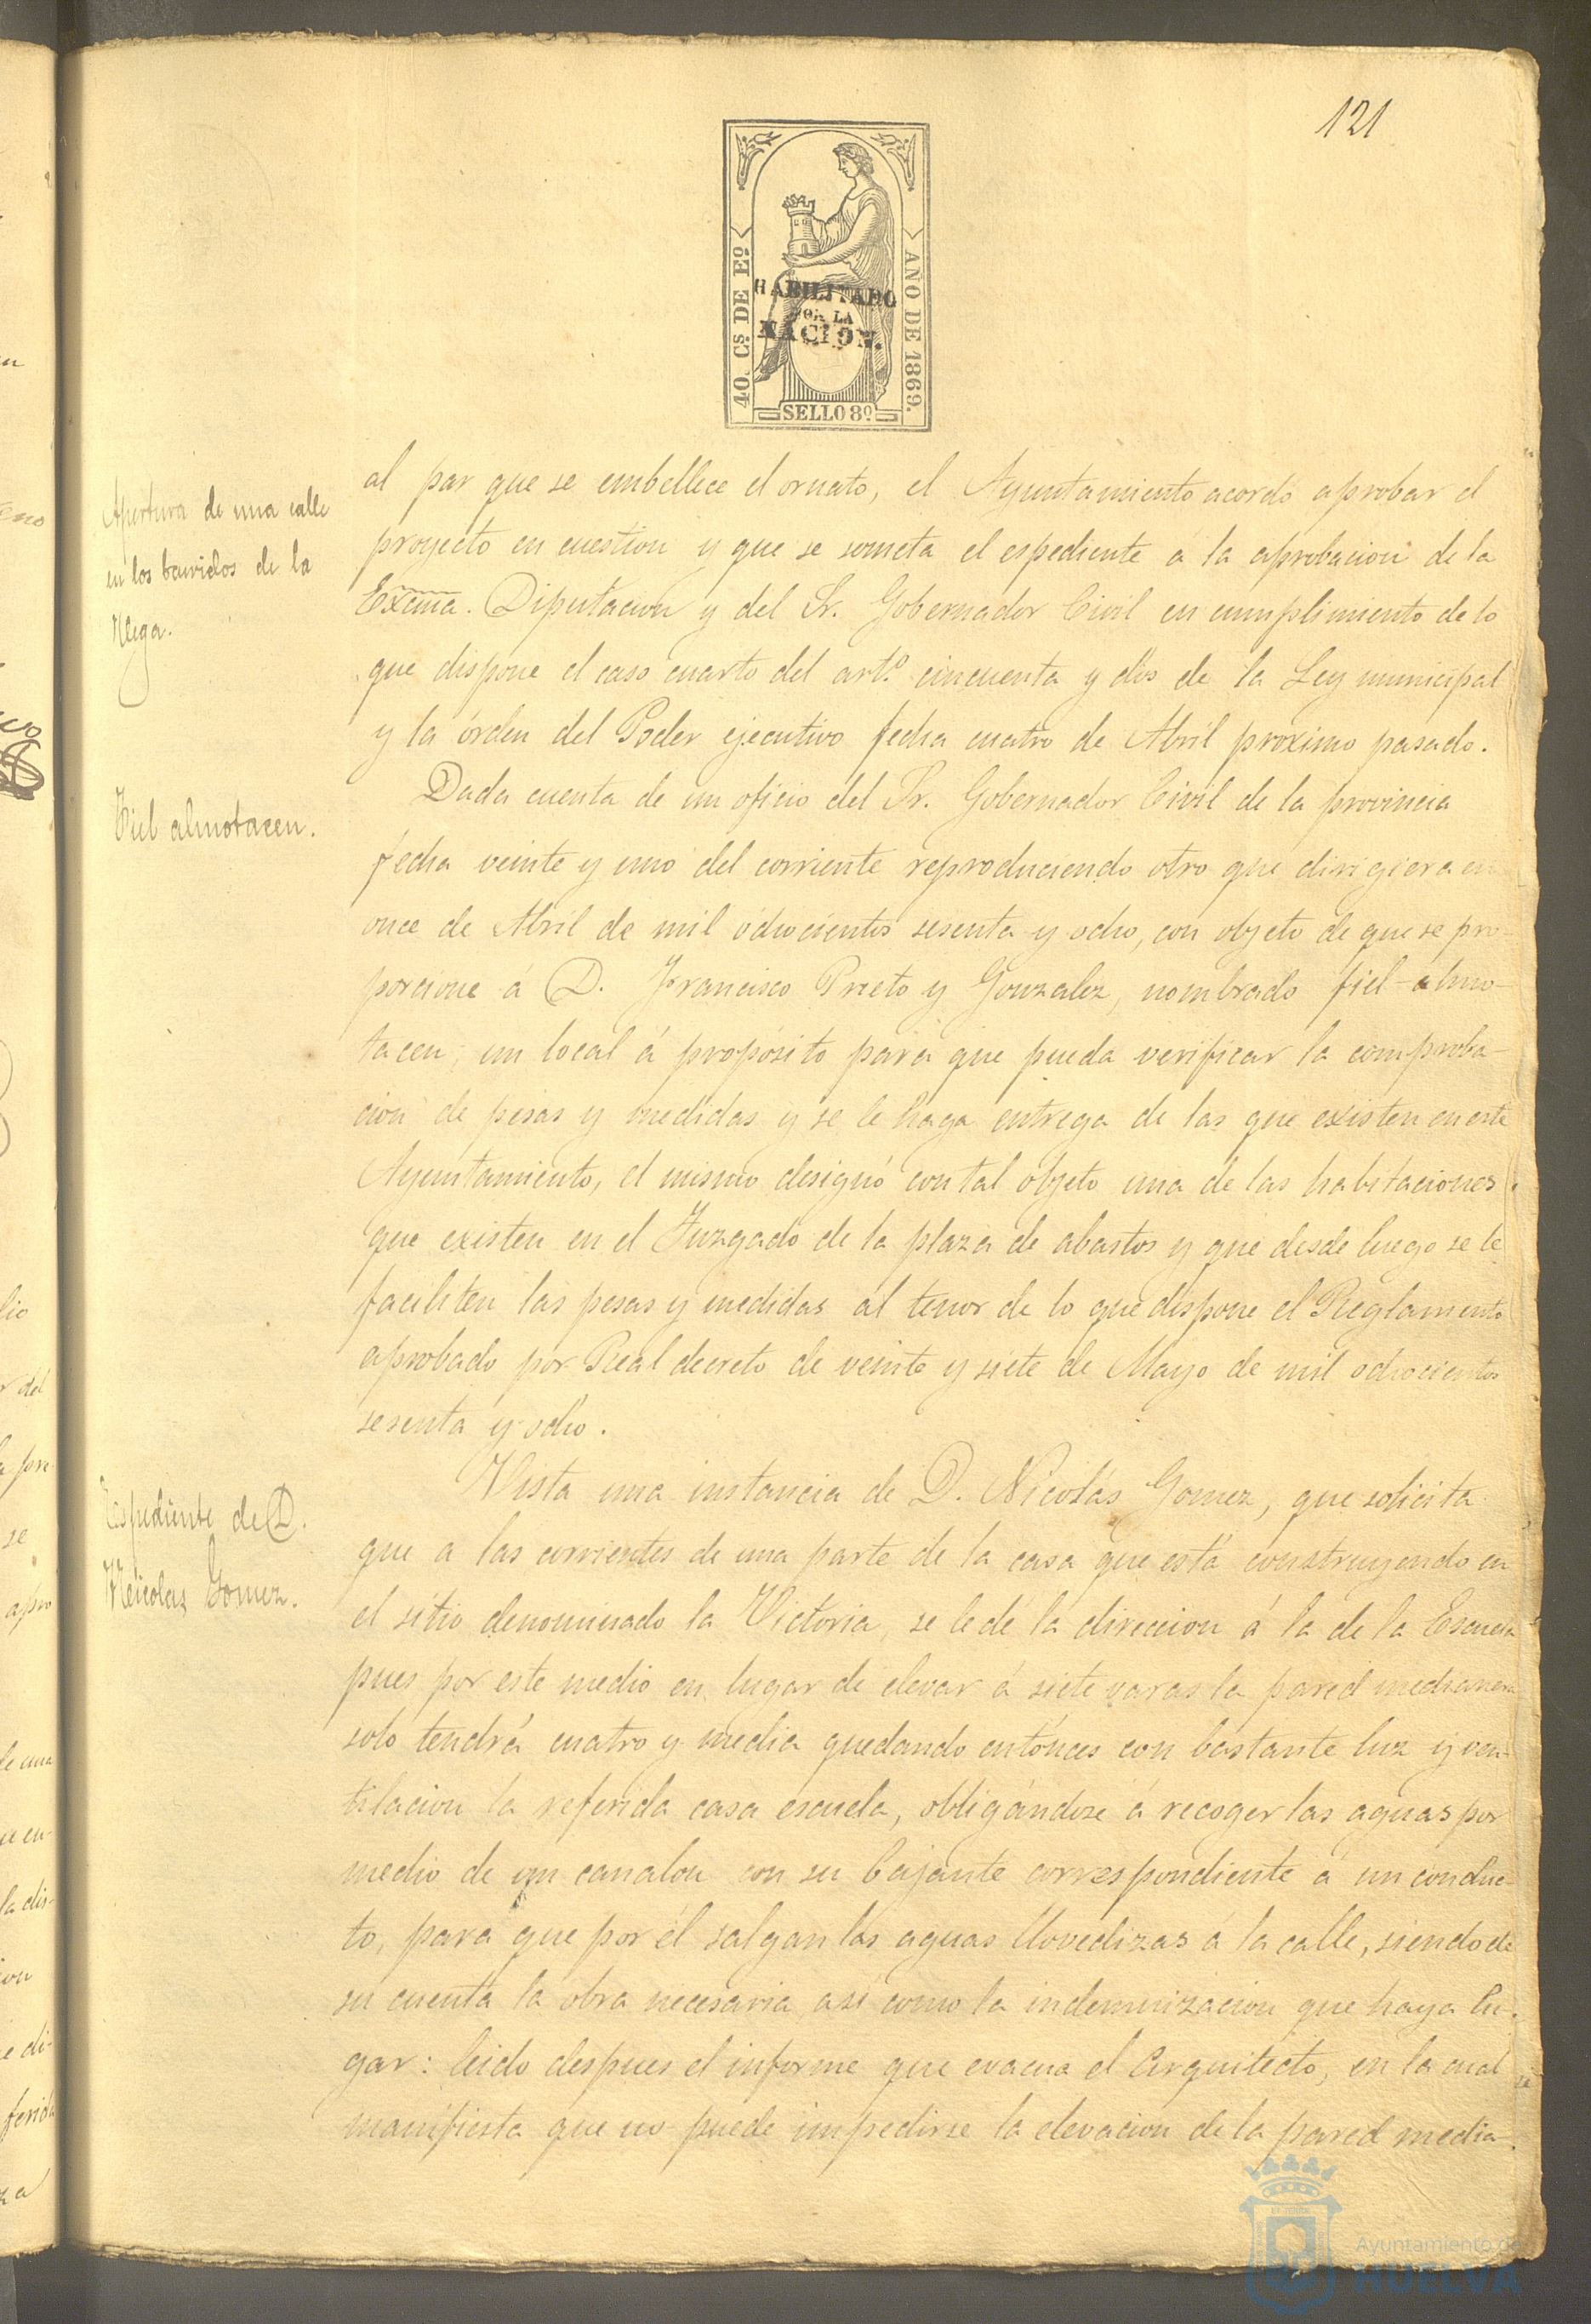 121
40. Cs. DE Eo.
AÑO DE 1869.
HABILITADO
POR LA
NACION.
SELLO 8º
Apertura de una calle
en los barridos de la
Vega.
al par que se embellece el ornato, el Ayuntamiento acordó aprobar el
proyecto en cuestion y que se someta el espediente á la aprobacion de la
Excma. Diputacion y del Sr. Gobernador Civil en cumplimiento de lo
que dispone el caso cuarto del artº. cincuenta y dos de la Ley municipal
y la órden del Poder ejecutivo fecha cuatro de Abril próximo pasado.
Fiel almotacen.
Dada cuenta de un oficio del Sr. Gobernador Civil de la provincia
fecha veinte y uno del corriente reproduciendo otro que dirigiera en
once de Abril de mil ochocientos sesenta y ocho, con objeto de que se pro-
porcione á D. Francisco Prieto y Gonzalez, nombrado fiel-almo-
tacen, un local á propósito para que pueda verificar la comproba-
cion de pesas y medidas y se le haga entrega de las que existen en este
Ayuntamiento, el mismo designó con tal objeto una de las habitaciones
que existen en el Juzgado de la plaza de abastos y que desde luego se le
faciliten las pesas y medidas al tenor de lo que dispone el Reglamento
aprobado por Real decreto de veinte y siete de Mayo de mil ochocientos
sesenta y ocho.
Espediente de D.
Nicolas Gomez.
Vista una instancia de D. Nicolás Gomez, que solicita
que a las corrientes de una parte de la casa que está construyendo en
el sitio denominado la Victoria, se le dé la direccion á la de la Escuela
pues por este medio en lugar de elevar á siete varas la pared medianera
solo tendrá cuatro y media quedando entónces con bastante luz y ven-
tilacion la referida casa escuela, obligándose á recoger las aguas por
medio de un canalon con su bajante correspondiente á un conduc-
to, para que por él salgan las aguas llovedizas á la calle, siendo de
su cuenta la obra necesaria asi como la indemnizacion que haya lu-
gar: leido despues el informe que evacua el Arquitecto, en la cual
manifiesta que no puede impedirse la elevacion de la pared media-
Ayuntamiento de
HUELVA